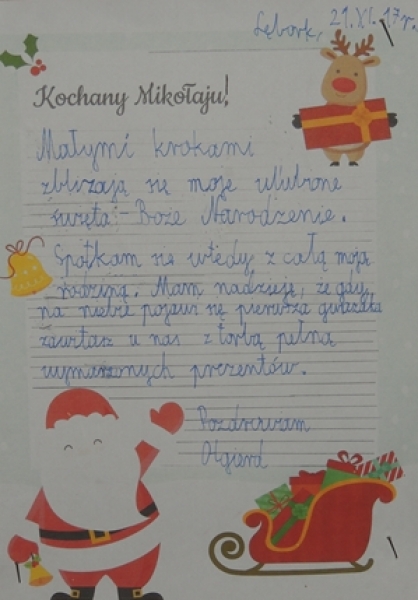 Lębork, 21.XI.17r.
Kochany Mikołaju!
Małymi krokami
zbliżają się moje ulubione
święta - Boże Narodzenie.
Spotkam się wtedy z całą moją
rodziną. Mam nadzieję, że gdy
na niebie pojawi się pierwsza gwiazdka
zawitasz u nas z torbą pełną
wymarzonych prezentów.
Pozdrawiam
Olgierd